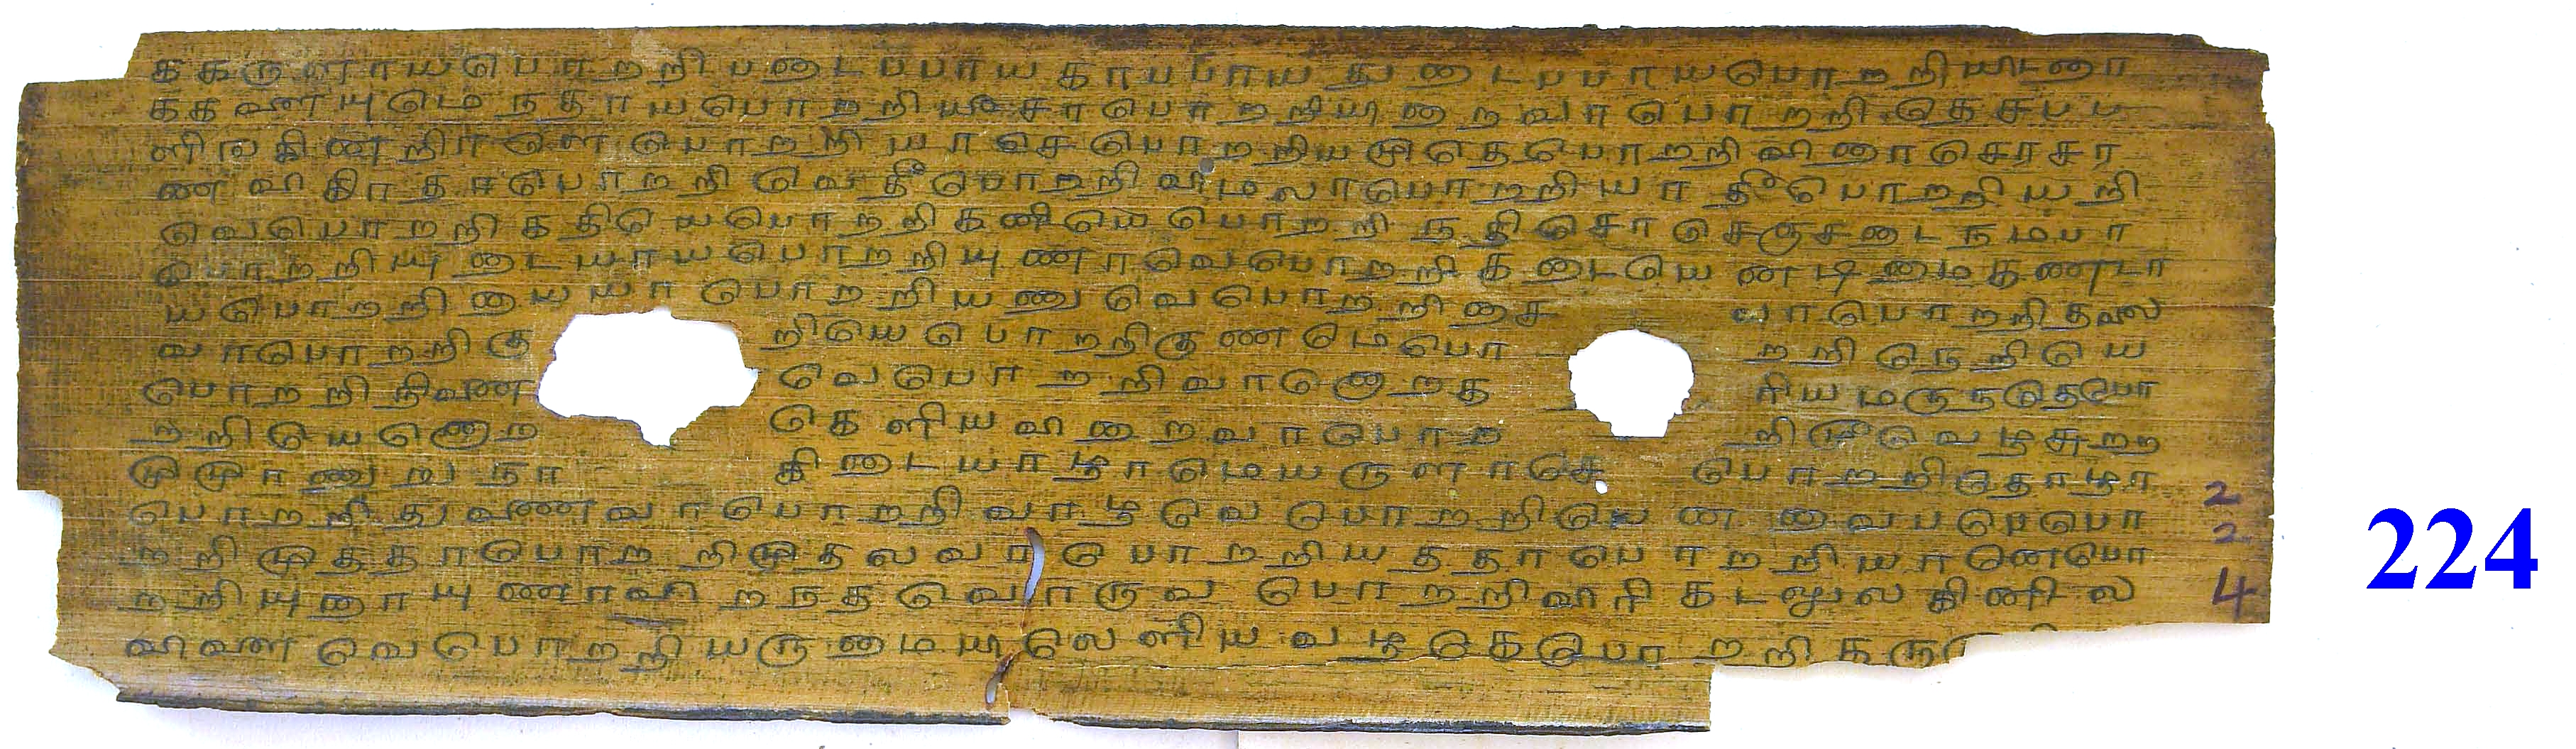 ககருளாயபொறறிபடைபபாயகாபபாயதுடைபபாயபொறறியிடரை
ககளையுமெநதாயபொறறியீசாபொறறியிறைவாபொறறிதெசபப
ளிஙகினறிரளெபொறறியரசெபொறறியமுதெபொறறிவிரைசெரசர
ணவிகிரதாபொறறிவெதீபொறறிவிமலாபொறறியாதீபொறறியறி
வெபொறறிகதியெபொறறிகனியெபொறறிநதிசெரசெஞசடைநமபா
பொறறியுடையாயபொறறியுணரவெபொறறிகடையெனடிமைகணடா
யபொறறிஐயயாபொறறியணுவெபொறறிசை வாபொறறிதலை
வாபொறறிகு றியெபொறறிகுணமெபொ றறிநெறியெ
பொறறிநினை வெபொறறிவானொரக ரியமருநதெபொ
றறியெனொர கெளியவிறைவாபொற றிமூவெழசுறற
முமுரணுறுநர கிடையாழாமெயருளரசெ பொறறிதொழா 2
பொறறிதுணைவாபொறறிவாழவெபொறறியெனவைபபெபொ 2
றறிமுததாபொறறிமுதலவாபொறறியததாபொறறியரனெபொ
றறியுரையுணரவிறநதவொருவபொறறிவிரிகடலுலகினில 4
விளைவெபொறறியருமையிலெளியவழகெபொறறிகரு
224